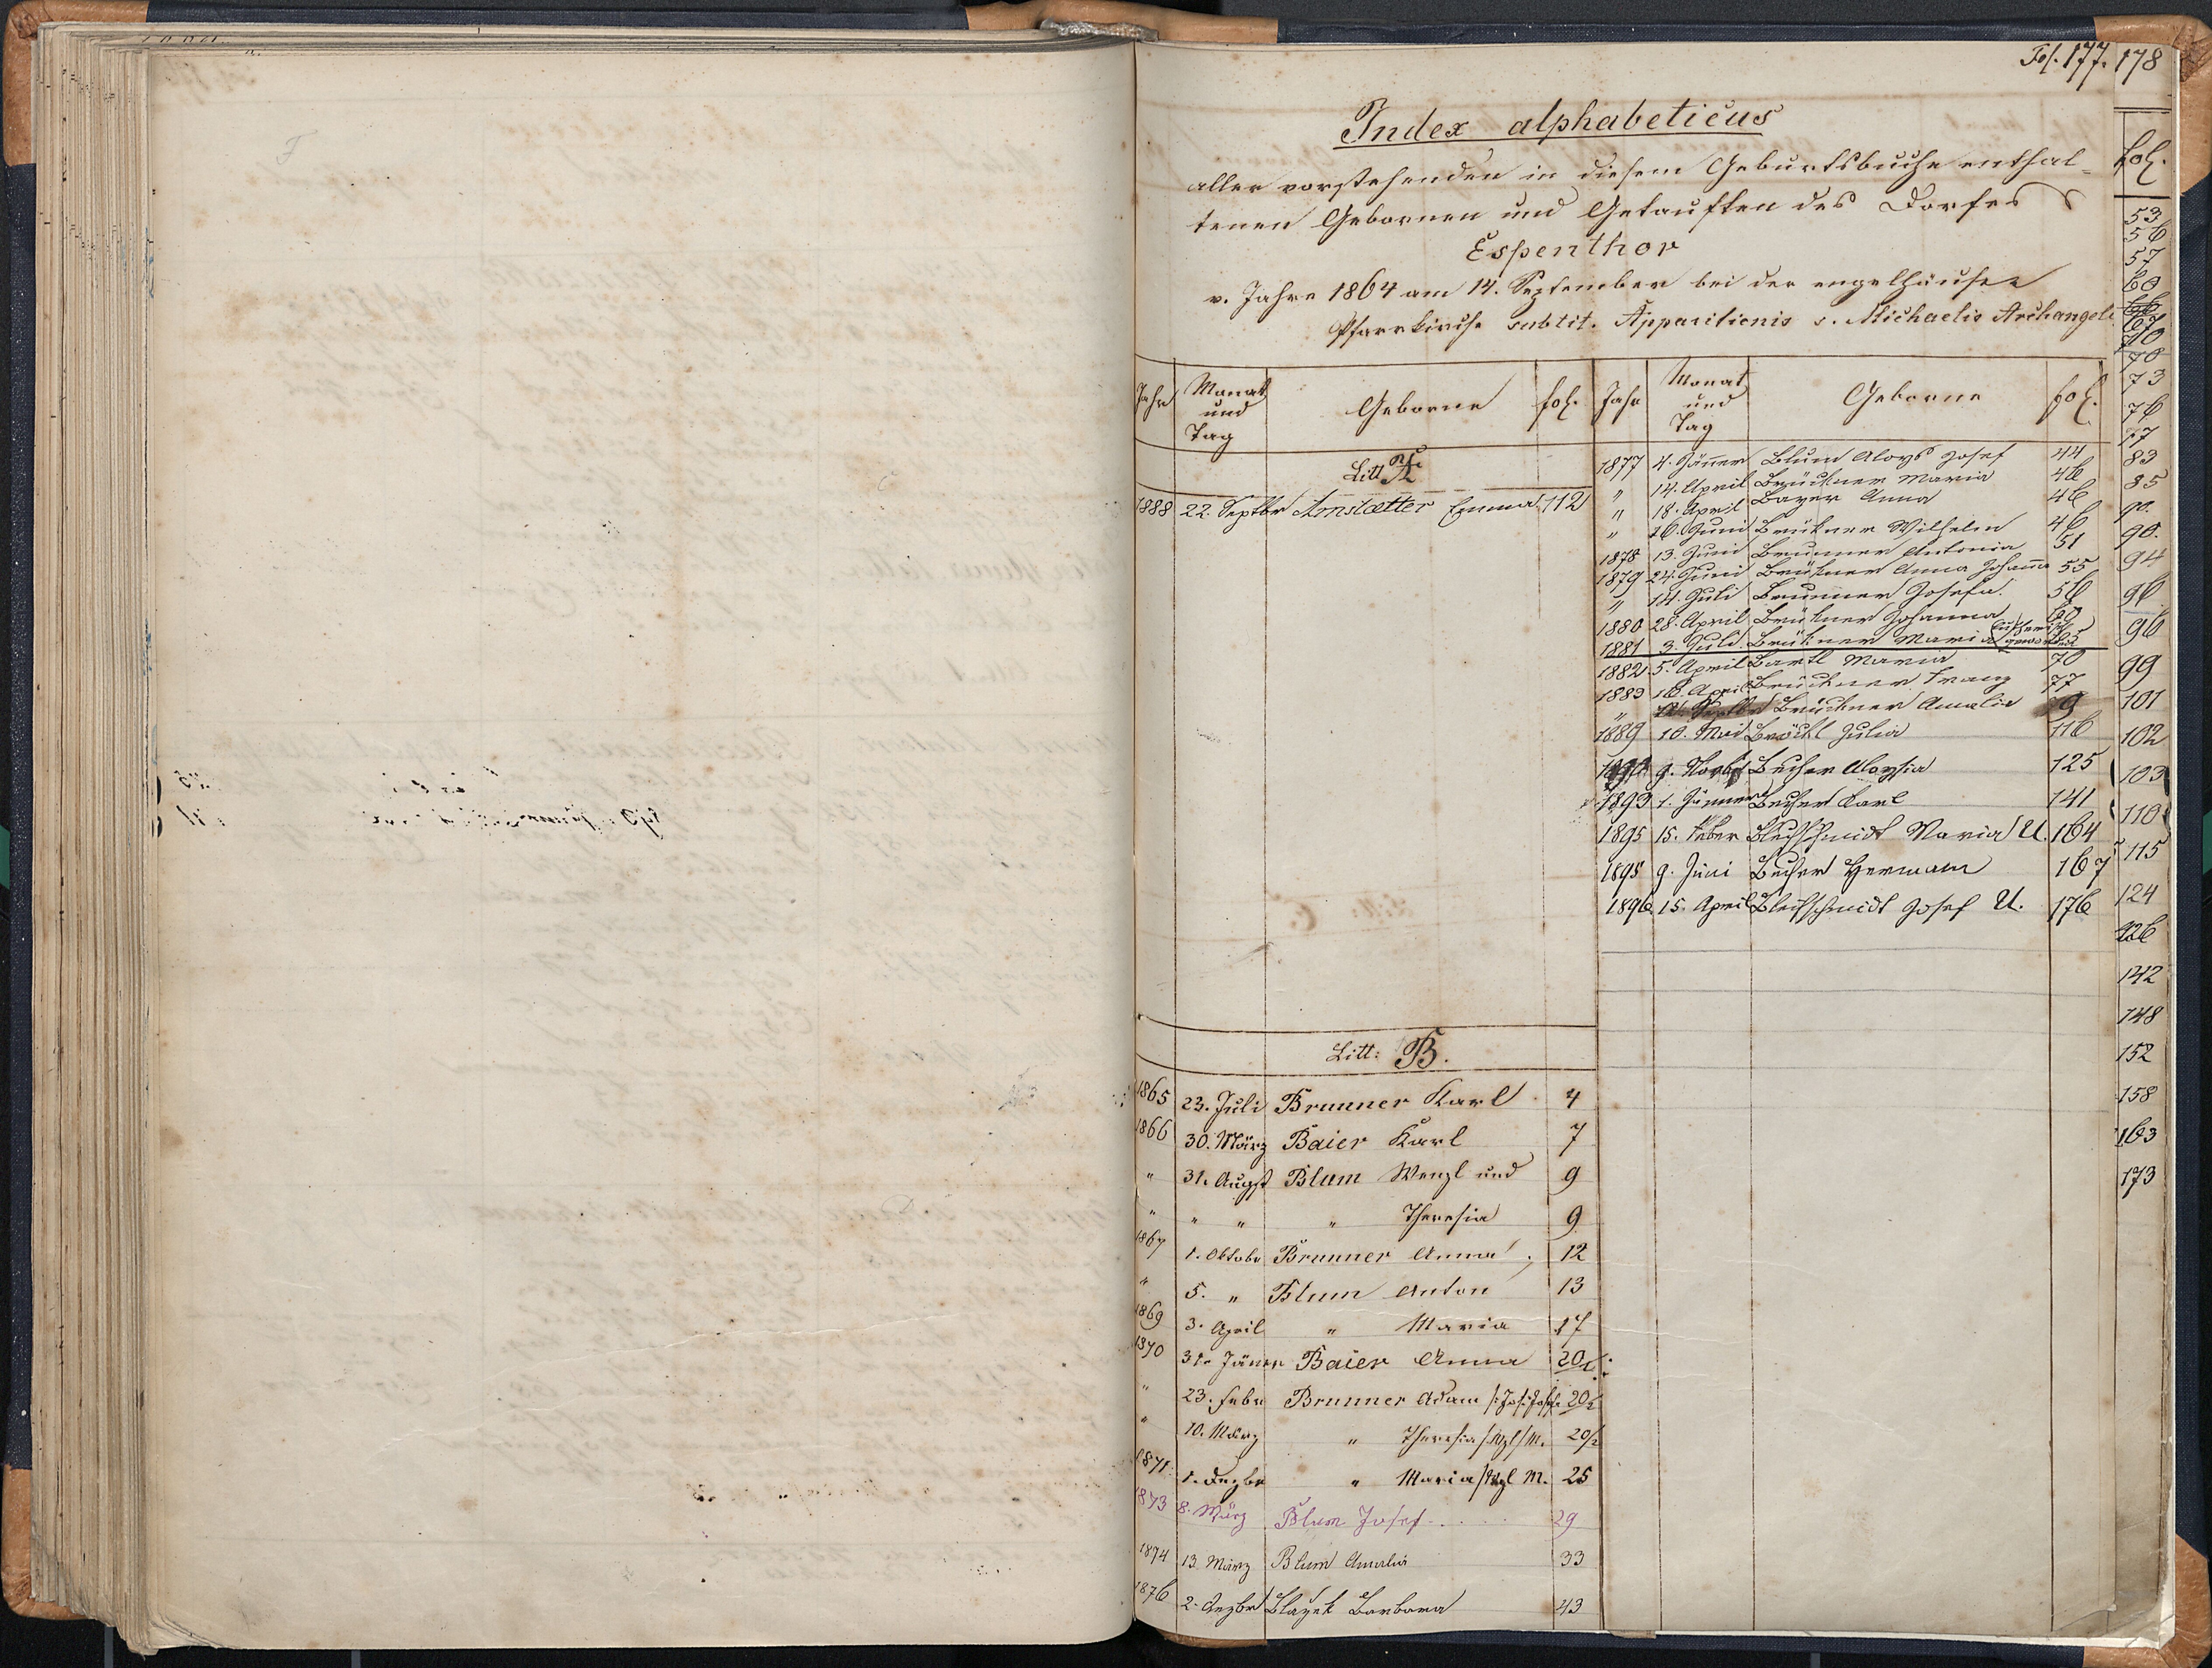 Fol. 177.
178
Index alphabeticus
aller vorstehenden in diesem Geburtsbuche enthal-
tenen Gebornen und Getauften des Dorfes
Espenthor
v. Jahre 1864 am 14. September bei der engelhäuser
Pfarrkirche subtit. Apparitionis s. Michaelis Archangeli
Jahr Monat und Tag Geborne fol.
Litt. A.
1888 22. Septbr Arnstætter Emma 112
Litt: B.
1865 23. Juli Brunner Karl 4
1866 30. März Baier Karl 7
" 31. Augst Blum Wenzl und 9
" " " " Theresia 9
1867 1. Oktobr Brunner Anna 12
" 5. " Blum Anton 13
1869 3. April " Maria 17
1870 31. Jäner Baier Anna 20
" 23. Febr Brunner Adam 20
" 10. März " Theresia 20/2
1871 1. Dezbr " Maria /Wzl M. 25
1873 8. März Blum Josef 29
1874 13. März Blum Amalia 33
1876 2. Dezbr Blazek Barbara 43
Jahr Monat und Tag Geborne fol.
1877 4. Jäner Blum Aloys Josef 44
" 14. April Brückner Maria 46
" 18. April Bayer Anna 46
" 26. Juni Brükner Wilhelm 46
1878 13. Juni Brunner Antonia 51
1879 24. Juni Brükner Anna Johanna 55
" 14. Juli Brunner Josefa 56
1880 28. April Brükner Johanna 60
1881 3. Juli Brükner Maria
1882 5. April Bartl Maria 70
1883 16. April Brückner Franz 77
" Septbr Brückner Amalia
1889 10. Mai Bröckl Julia 116
9. Novbr Becher Aloysia 125
1893 1. Jänner Becher Karl 141
1895 15. Feber Blechschmidt Maria U. 164
1895 9. Juni Becher Hermann 167
1896 15. April Blechschmidt Josef U. 176
fol.
53
56
57
60
67
70
70
73
76
77
83
85
90.
90.
94
96
96
99
101
102
103
110
115
124
126
142
148
152
158
163
173